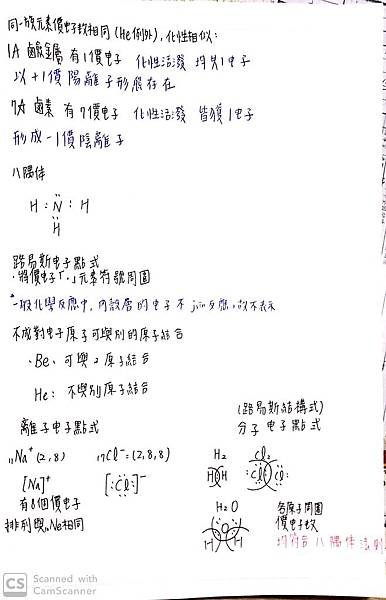 同一族元素價電子數相同(He例外),化性相似:
1A 鹼金屬 有1價電子 化性活潑 均失1電子
以+1價陽離子形態存在
7A 鹵素 有7價電子 化性活潑 皆獲1電子
形成-1價陰離子
八隅体
H:N:H
H
路易斯电子點式
·將價电子「·」元素符號周圍
一般化學反應中,內殼層的电子不join反應,故不表示
不成對电子原子可與別的原子結合
·Be· 可與2原子結合
He: 不與別原子結合
離子电子點式
(路易斯結構式)
分子电子點式
11Na⁺(2,8) 17Cl⁻=(2,8,8)
[Na]⁺ [:Cl:]⁻
有8個價电子
排列與10Ne相同
H2 Cl2
H H :Cl Cl:
H2O
O
H H
各原子周圍
價电子数
均符合八隅体法則
CS Scanned with
CamScanner